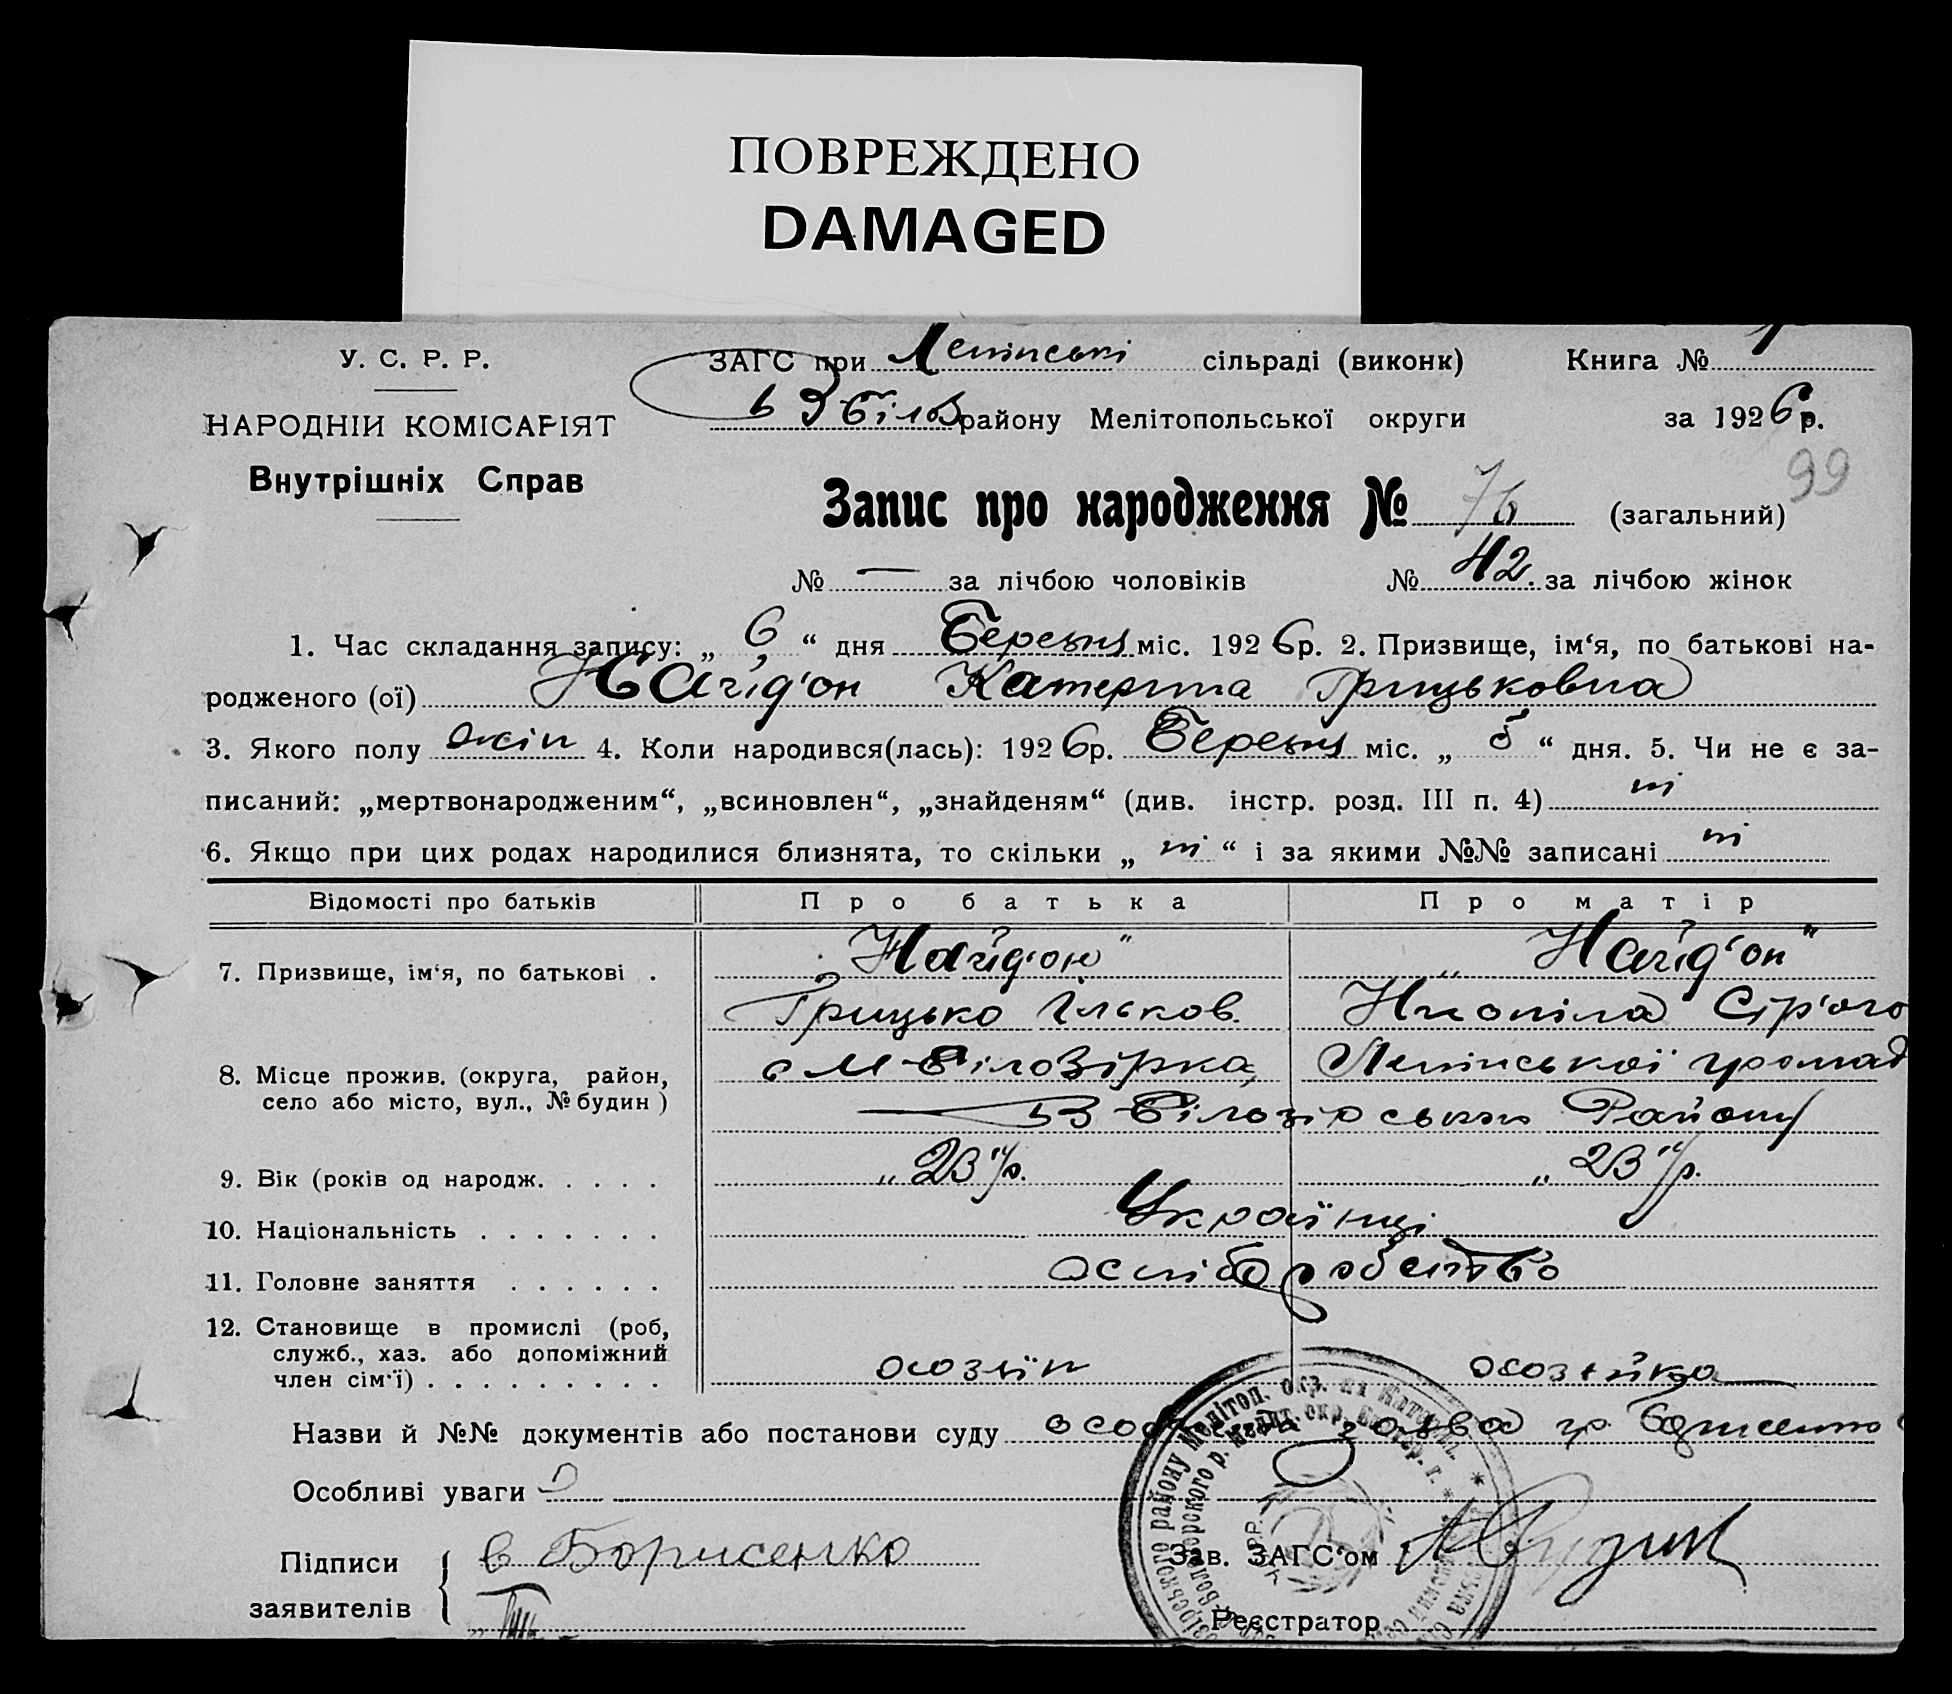 ПОВРЕЖДЕНО
DAMAGED
У. С. Р. Р.
ЗАГС при Ленінські сільраді (виконк) Книга № 1
НАРОДНІЙ КОМІСАРІЯТ
району Мелітопольської округи за 1926р.
Внутрішніх Справ
99
Запис про народження № 76 (загальний)
№ — за лічбою чоловіків № 42. за лічбою жінок
1. Час складання запису: „ 6 “ дня Березня міс. 1926р. 2. Призвище, ім‘я, по батькові на-
родженого (ої) Найд'он Катерина Грицьковна
3. Якого полу жін 4. Коли народився(лась): 1926р. Березня міс. „ “ дня. 5. Чи не є за-
писаний: „мертвонародженим“, „всиновлен“, „знайденям“ (див. інстр. розд. III п. 4) ні
6. Якщо при цих родах народилися близнята, то скільки „ ні “ і за якими №№ записані ні
Відомості про батьків Про батька Про матір
7. Призвище, ім‘я, по батькові . „Найд'он" „Найд'он"
Грицько Ільков.
8. Місце прожив. (округа, район, Ленінської громад
село або місто, вул., № будин ) Району
9. Вік (років од народж. . . . . . „23"р. „23"р.
10. Національність . . . . . . . Українці
11. Головне заняття . . . . . .
12. Становище в промислі (роб,
служб., хаз. або допоміжний
член сім‘ї) . . . . . . . . . хозяїн хозяйка
Назви й №№ документів або постанови суду
Особливі уваги
Підписи Борисенко Зав. ЗАГС‘ом
заявителів
Реєстратор